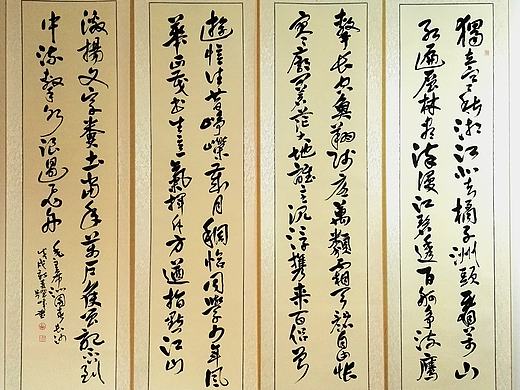 獨立寒秋湘江北去橘子洲頭看萬山
紅遍層林盡染漫江碧透百舸争流鷹
擊長空魚翔淺底萬類霜天競自由悵
寥廓問蒼茫大地誰主沉浮携来百侣曾
遊憶往昔崢嶸歲月稠恰同學少年風
華正茂書生意氣揮斥方遒指點江山
激揚文字糞土當年萬户侯曾記否到
中流擊水浪遏飛舟
毛主席沁園春長沙
戊戌